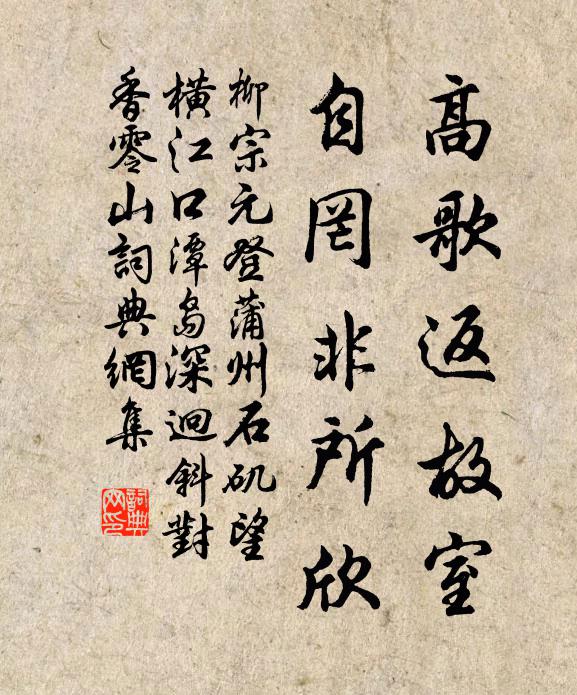 高歌返故室
自罔非所欣
柳宗元登蒲州石矶望
横江口潭島深迴斜對
香零山詞典網集
詞典
网印